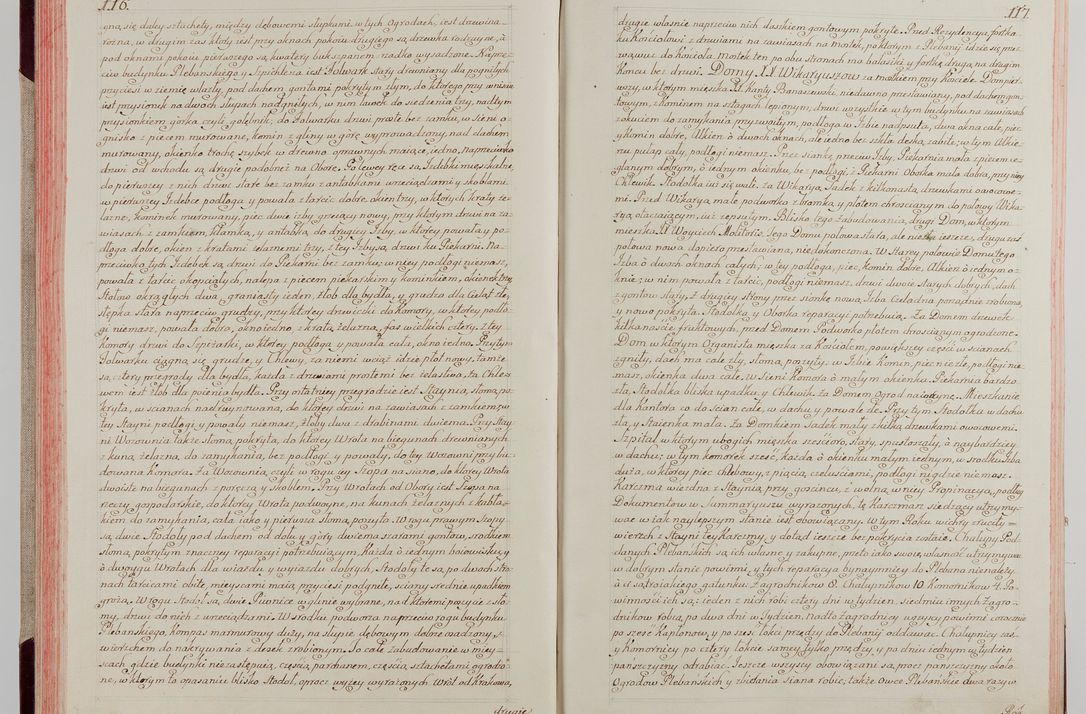 116.
ona, się daley sztachety, między dębowemi słupkami, w tych Ogrodach, iest drzewina
rożna, w drugim zas ktoły iest przy oknach pokoiu drugiego są drzewka rodzayne, a
pod oknami pokoiu pierwszego są, kwatery bukszpanem rzadko wysadzone. Naprze-
ciw budynku Plebanskiego y Szpichlerza iest Folwark stary drewniany dla pogniłych
przyciesi w ziemię wlazły, pod dachem gontami pokrytym złym, do ktorego przy wniściu
iest przysionek na dwoch słupach nadgniłych, w nim ławek do siedzenia trzy, nad tym
przysionkiem gorka czyli gołębnik, do Folwarku drzwi proste bez zamku, w sieni o-
gnisko z piecem murowane, komin z gliny w górę wyprowadzony, nad dachem
murowany, okienko trochę szybek w drewno oprawnych maiące, iedno, naprzeciwko
drzwi od wchodu są drugie podobneż na Oborę. Po lewey ręce są Izdebki mieszkalne,
do pierwszey z nich drzwi stare bez zamku z antabkami wrzeciądzami y skoblami.
w pierwszey Izdebce podłoga y powała z tarcic dobre, okien trzy, w ktorych kraty że-
lazne, kominek murowany, piec dwie izby grzeiący nowy, przy ktorym drzwi na za-
wiasach z zamkiem, klamką, y antabką, do drugiey Izby, w ktorey powała y po-
dłoga dobre, okien z kratami żelaznemi trzy, z tey Izby są, drzwi ku Piekarni. Na-
przeciwko tych Izdebek są, drzwi do Piekarni bez zamku; w niey podłogi niemasz,
powała z tarcic okopciałych, nalepa z piecem piekarskim y kominkiem, okienek trzy,
Stołow okrągłych dwa, graniasty ieden, żłob dla bydła, y grudza dla Cieląt złe,
stępka stara naprzeciw grudzy, przy ktorey drzwiczki do komory, w ktorey podło-
gi niemasz, powała dobra, okno iedno, z kratą żelazną, fas wielkich cztery. Z tey
Komory drzwi do Spiżarki, w ktorey podłoga y powała cała, okno iedno. Przy tym
Folwarku ciągną się grudze, y Chlewy, za niemi wciąż idzie płot nowy, tamże
są, cztery przegrody dla bydła, każda z drzwiami prostemi bez żelastwa, za Chle-
wem iest żłob dla poienia bydła. Przy ostatniey przegrodzie iest Staynia, słomą po-
kryta, w scianach nadruynowana, do ktorey drzwi na zawiasach z zamkiem, w
tey Stayni podłogi y powały niemasz, żłoby dwa z drabinami dwiema. Przy Stay-
ni Wozownia także słomą, pokryta, do ktorey Wrota na biegunach drzewnianych
z kuną, żelazną, do zamykania, bez podłogi y powały, do tey Wozowni przy bu-
dowana Komora. Za Wozownią, czyli w rogu iey Szopa na siano, do ktorey Wrota
dwoiste na biegunach z poręczą y Skoblem. Przy Wrotach od Obory iest Szopa na
rzeczy gospodarskie, do ktorey Wrota podwoyne, na kunach żelaznych z kabłą-
kiem do zamykania, cała iako y pierwsza słomą poszyta. W rogu prawym Szopy
są, dwie Stodoły pod dachem od dołu y góry dwiema szarami gontow, srodkiem
słomą, pokrytym znaczney reparacyi potrzebuiącym, Każda o iednym boiowisku, y
o dwoygu Wrotach dla wiazdu y wyiazdu dobrych. Stodoły te są, po dwoch stro-
nach tarcicami obite, mieyscami maią, przyciesi podgniłe, sciany srednie upadkiem
grożą. W rogu Stodoł są, dwie Piwnice w glinie wybrane, nad ktoremi poszycie z sło-
my, drzwi do nich z wrzeciądzami. W środku podworza naprzeciw rogu budynku
Plebanskiego, kompas marmurowy duży, na słupie dębowym dobrze osadzony, z
wierzchem do nakrywania z desek zrobionym. To całe zabudowanie w miey-
scach gdzie budynki niezastępuią, częścią parkanem, częścią sztachetami ogrodzo-
ne, w ktorym to opasaniu blisko Stodoł, oprocz wyżey wyrażonych Wrot od Krakowa,
drugie
117.
drugie własnie naprzeciw nich daszkiem gontowym pokryte. Przed Rezydencyą, fortka
ku Kościołowi z drzwiami na zawiasach na mostek, po ktorym z Plebanij idzie się prze-
z wąwoz do Kościoła. Mostek ten po obu stronach ma balaski, y fortkę drugą, na drugim
końcu bez drzwi. Domy JJ. Wikaryuszow za mostkiem przy Kościele. Dom pier-
wszy, w ktorym mieszka JX. Kanty Banaszewski, niedawno przestawiany, pod dachem gon-
towym, z Kominem na sztagach lepionym, drzwi wszystkie w tym budynku na zawiasach
z okuciem do zamykania przyzwoitym, podłoga w Izbie nadpsuta, dwa okna całe, piec
y komin dobre. Alkierz o dwoch oknach, ale iedno bez szkła deską, zabite; w tym Alkie-
rzu pułap cały, podłogi niemasz. Przez sionkę przeciw Izby, Piekarnia mała z piecem ce-
glanym dobrym, o iednym okienku, bez podłogi; z Piekarni Oborka mała dobra, przy niey
Chlewik. Stodolka iuż się wali. Za Wikaryą, Sadek z kilkonastą, drzewkami owocowe-
mi. Przed Wikaryą małe podworko z bramką y płotem chrościanym do połowy Wika-
ryą, otaczaiącym, iuż zepsutym. Blisko tego zabudowania drugi Dom, w ktorym
mieszka JX. Woyciech Molitoris. Tego Domu połowa stara, ale niezła ieszcze, druga zaś
połowa nowa, dopiero przestawiana, niedokonczona. W starey połowie Domu tego
Izba o dwoch oknach całych; w tey podłoga, piec, komin dobre. Alkierz o iednym o-
knie; w nim powała z tarcic, podłogi niemasz, drzwi dwoie starych dobrych, dach
z gontow stary. Z drugiey strony przez sionkę nowa, Izba Czeladna porządnie zrobiona,
y nowo pokryta. Stodolka y Oborka reparacyi potrzebuią. Za Domem drzewek
kilkanaście fruktowych, przed Domem Podworko płotem chrościanym ogrodzone.
Dom w ktorym Organista mieszka, za Kościołem, po większey części w scianach
zgniły, dach ma cale zły, słomą poszyty, w Izbie komin, piec niezłe, podłogi nie-
masz, okienka dwa całe, w Sieni Komora o małym okienku. Piekarnia bardzo
zła. Stodolka bliska upadku, y Chlewik. Za Domem Ogrod na iarzynę. Mieszkanie
dla Kantora co do scian całe, w dachu, y powale złe. Przy tym Stodolka w dachu
zła, y Staienka mała. Za Domkiem Sadek mały z kilką, drzewkami owocowemi.
Szpital w ktorym ubogich mieszka sześcioro, stary, spustoszały, a naybardziey
w dachu; w tym komorek sześć, każda o okienku małym iednym, w srodku Izba
duża, w ktorey piec chlebowy, z piącią, czeluściami, podłogi nigdzie niemasz.
Karczma wiezdna z Staynią, przy gościncu, z wolną w niey Propinacyą, podług
Dokumentow w Summaryuszu wyrażonych, tę Karczmę siedzący utrzymy-
wać w iak naylepszym stanie iest obowiązany. W tym Roku wichry zruciły
wierzch z Stayni tey karczmy, y dotąd ieszcze bez pokrycia zostaie. Chałupy Pod-
danych Plebańskich są, ich własne y zakupne, przeto iako swoię własność utrzymywać
w dobrym stanie powinni, y tych reparacya bynaymniey do Plebana nienależy,
a ci są, troiakiego gatunku. Zagrodnikow 8. Chałupnikow 10. Komornikow 4. Po-
winności ich są: ieden z nich robi cztery dni w tydzień, siedmiu innych Zagro-
dnikow robią, po dwa dni w Tydzień. Nadto Zagrodnicy wszyscy powinni corocznie
po szesć Kapłonow, y po szesc łokci przędzy do Plebanij oddawać. Chałupnicy zas
y Komornicy po cztery łokcie samey tylko przędzy, y po dniu iednym w tydzień
pańszczyzny odrabiać. Ieszcze wszyscy obowiązani są, procz pańszczyzny około
Ogrodow Plebańskich y zbierania siana robić, także Owce Plebańskie dwa razy w